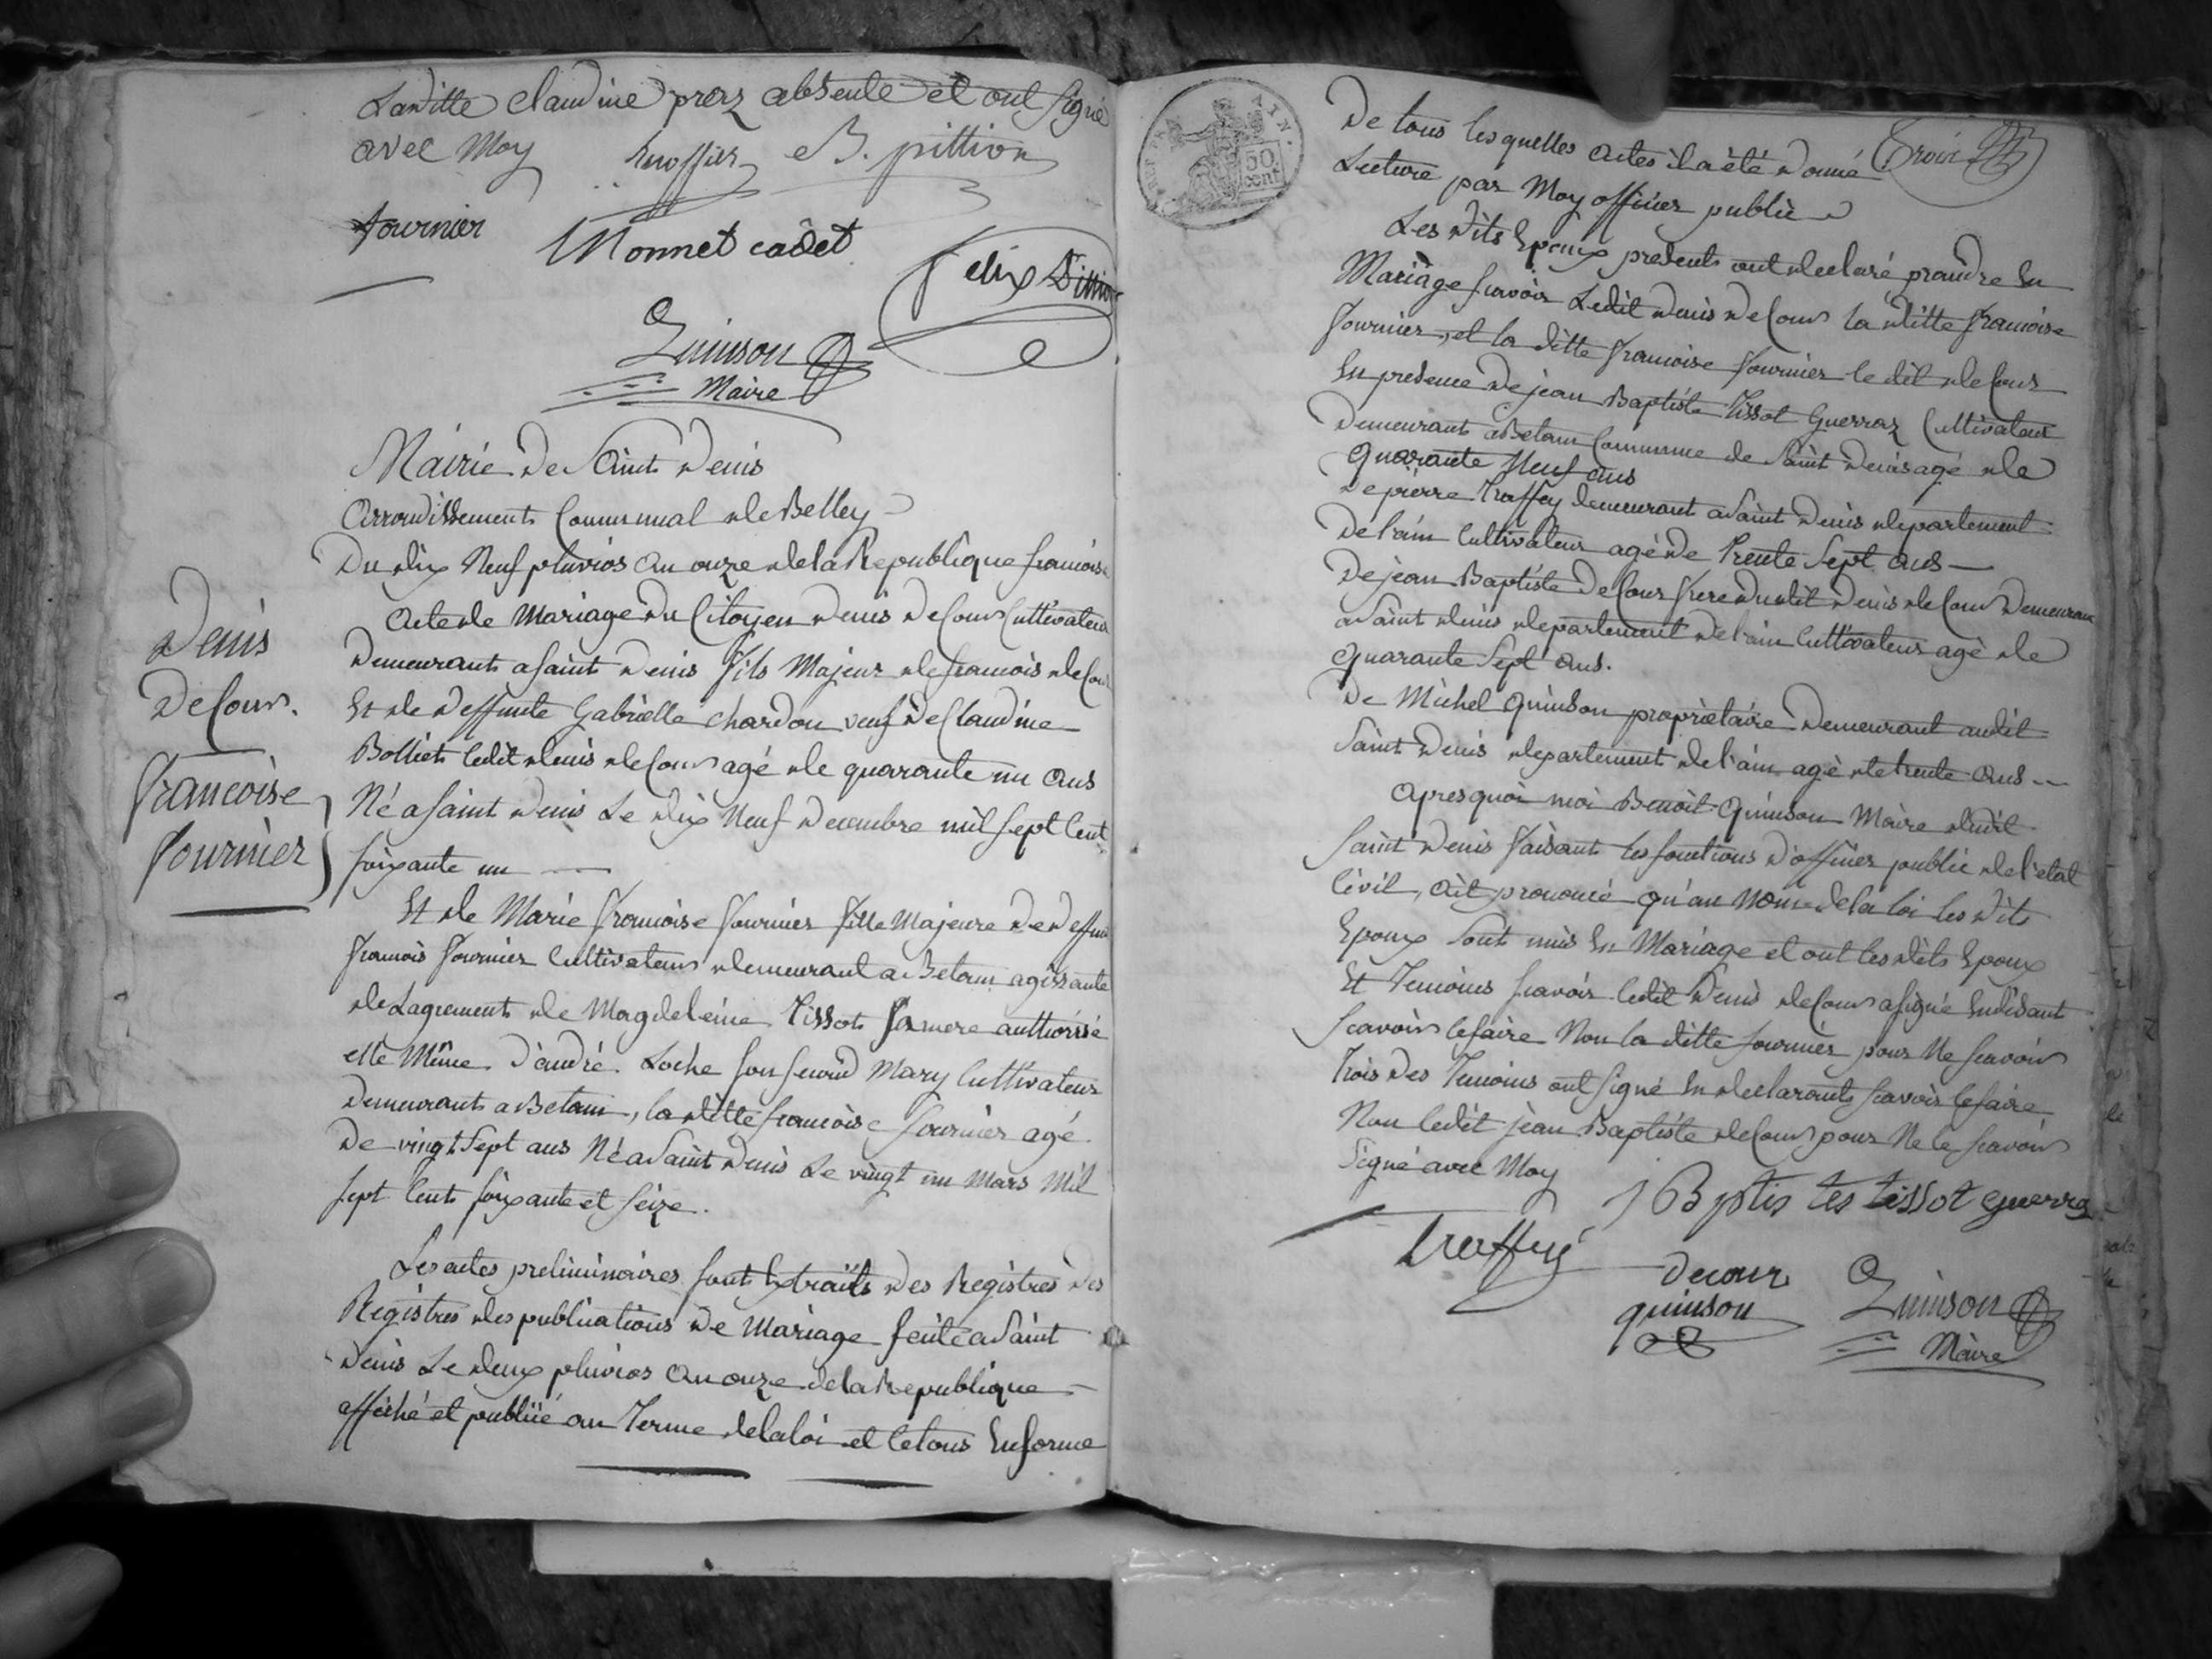 Laditte Claudine prerz absente et ont signé
avec Moy B. pittion
fournier Monnet cadet
felix Pittion
Quinson
Maire
Mairie De Saint Denis
Arrondissement Communal de Belley
Du dix Neuf pluvios an onze de la Republique francoise
Acte de Mariage Du Citoyen Denis Decour Cultivateur
Demeurant a saint Denis fils Majeur de francois deCour
Et de Deffunte Gabrielle Chardon veuf De Claudine
Bolliet ledit denis deCour agé de quarante un ans
Né a saint Denis Le dix Neuf Decembre mil sept Cent
soixante un
Denis
DeCour.
francoise
fournier
Et de Marie francoise fournier fille Majeure De Deffunt
francois fournier Cultivateur demeurant a Betam agissante
de Lagrement de Magdeleine Tissot sa mere authorisé
elle Même D'andré Loche son second Mary Cultivateur
Demeurant a Betam, la ditte francoise fournier agé
De vingt sept ans Né a Saint Denis Le vingt un Mars Mil
sept Cent soixante et seize.
Les actes preliminaires sont Extraits Des Registres Des
Registres des publications De Mariage feite a Saint
Denis Le deux pluvios an onze de la Republique
affiché et publiié au Terme de la loi et le tous En forme
REP. FRA. AIN.
50 cent
Troix
De tous lesquelles actes il a été Donné
Lecture par Moy officier public
Les Dits Epoux presents ont declaré prendre En
Mariage scavoir Ledit denis DeCour la ditte francoise
fournier, et la ditte francoise fournier le dit deCour
En presence De jean Baptiste Tissot Guerraz Cultivateur
Demeurant a Betam Commune de Saint Denis agé de
Quarante Neuf ans
De pierre Treffey demeurant a Saint Denis departement
De l'ain Cultivateur agé De trente sept ans
De jean Baptiste DeCour frere Dudit Denis deCour Demeurant
a Saint denis departement de l'ain Cultivateur agé de
quarante sept ans.
De Michel Quinson proprietaire Demeurant audit
Saint Denis departement de l'ain agé de trente ans
Apres quoi moi Benoit Quinson Maire dudit
Saint Denis faisant les fonctions D'officier public de l'etat
Civil, ait prononcé qu'au Nom de la loi les Dits
Epoux sont unis En Mariage et ont les dits Epoux
Et Temoins scavoir ledit Denis deCour a signé Endisant
scavoir le faire Non la ditte fournier pour Ne scavoir
Trois Des Temoins ont signé En declarant scavoir le faire
Non ledit jean Baptiste deCour pour Ne le scavoir
Signé avec Moy
J Bptis tes tissot guerra
Treffey
decour
quinson
Quinson
Maire